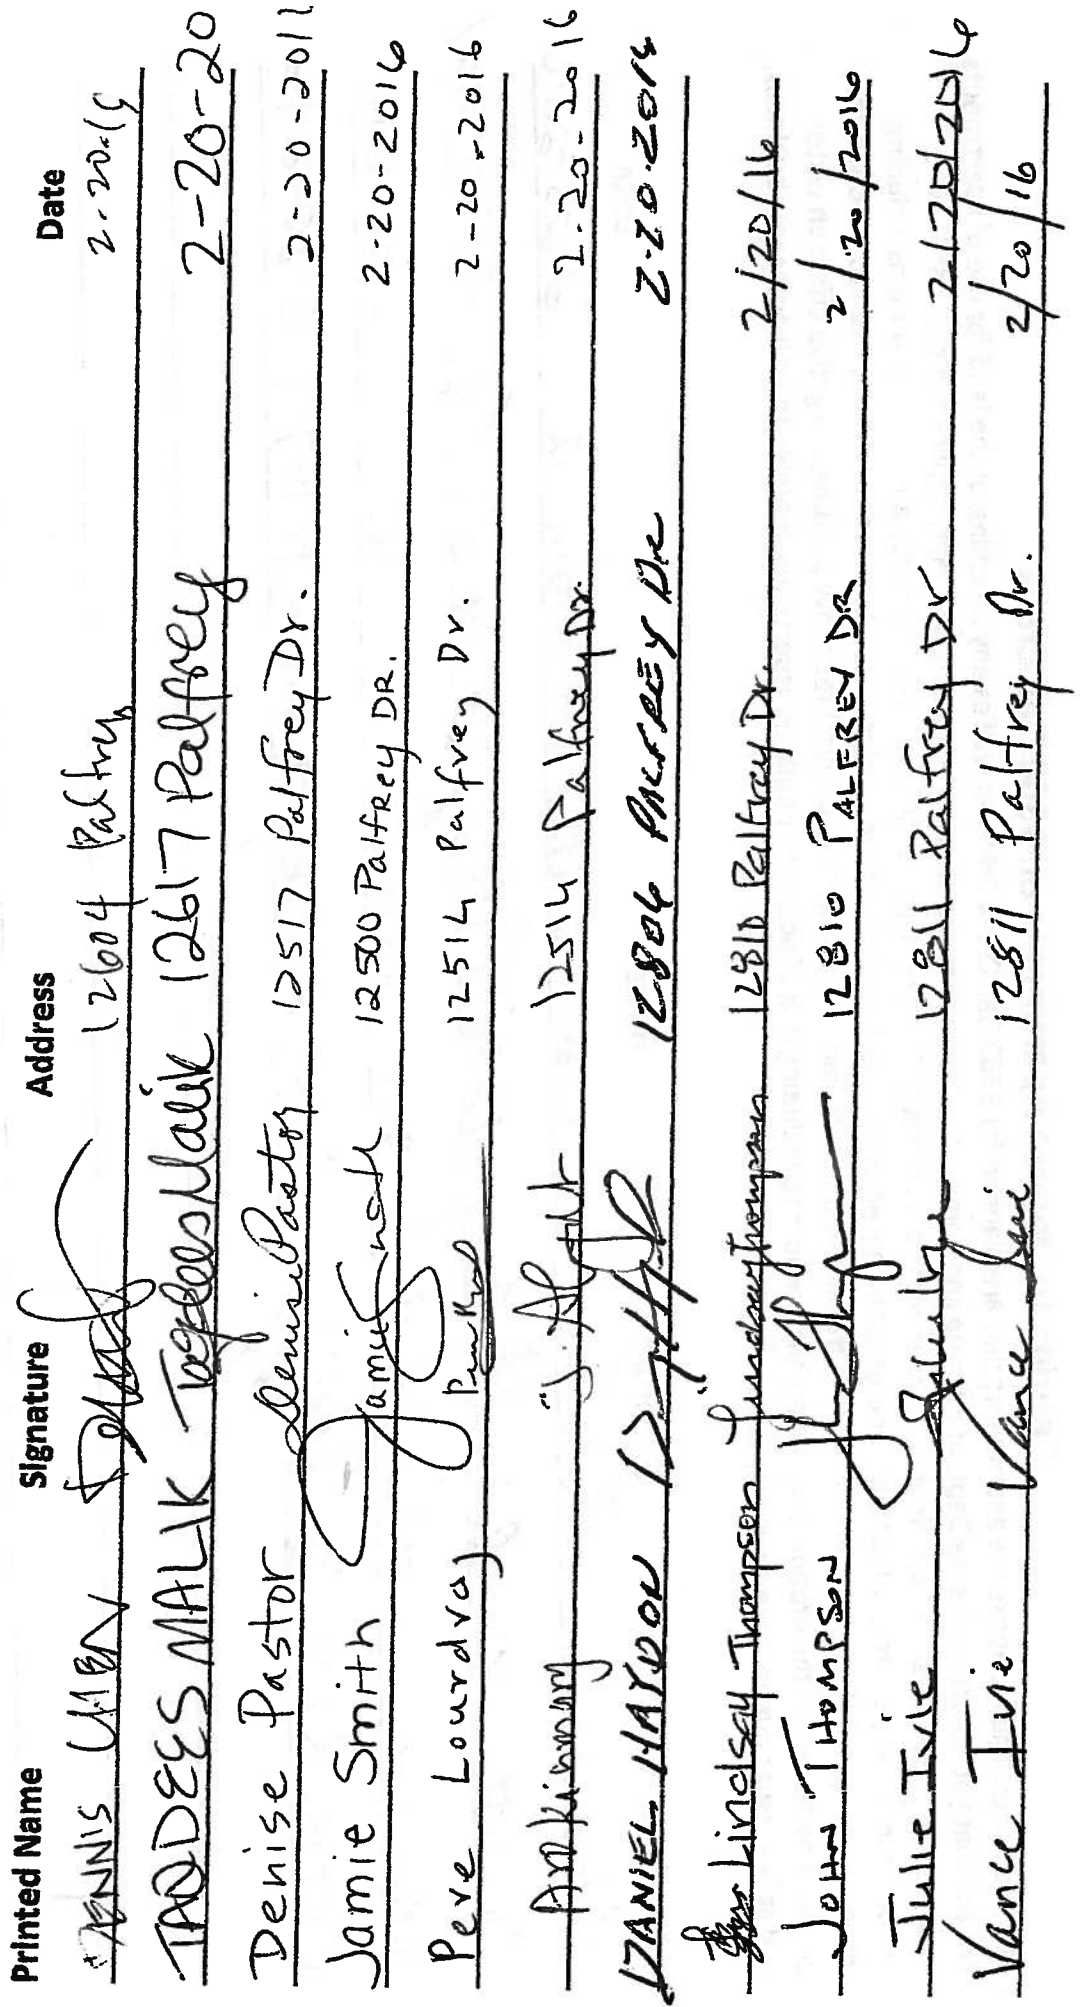 Printed Name Signature Address Date
DENNIS 12604 Palfrey 2-20-
TAQDEES MALIK Taqdees Malik 12617 Palfrey 2-20-20
Denise Pastor Denise Pastor 12517 Palfrey Dr. 2-20-201
Jamie Smith Jamie Smith 12500 Palfrey DR. 2-20-2016
Pere Lourdraj 12514 Palfrey Dr. 2-20-2016
12514 Palfrey Dr. 2-20-2016
DANIEL HAYDON 12806 PALFREY DR 2-20-2016
Lindsay Thompson Lindsay Thompson 12810 Palfrey Dr. 2/20/16
JOHN THOMPSON 12810 PALFREY DR 2/20/2016
Julie Ivie 12811 Palfrey Dr 2/20/2016
Vance Ivie Vance Ivie 12811 Palfrey Dr. 2/20/16